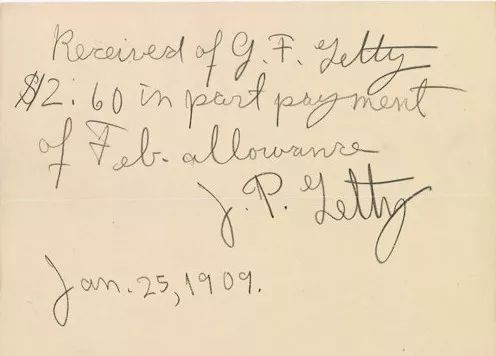 Received of G. F. Getty
$2:60 in part payment
of Feb. allowance
J. P. Getty
Jan. 25, 1909.